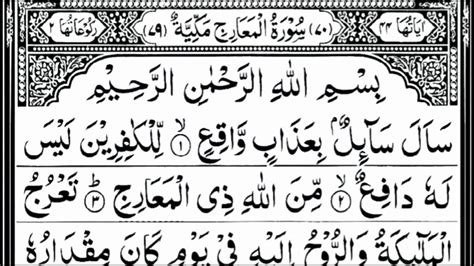 اٰيَاتُهَا ٤٤ (٧٠) سُوْرَةُ الْمَعَارِجِ مَكِّيَّةٌ (٧٩) رُكُوْعَاتُهَا ٢
بِسْمِ اللّٰهِ الرَّحْمٰنِ الرَّحِيْمِ
سَاَلَ سَآئِلٌۢ بِعَذَابٍ وَّاقِعٍ ۙ‏﴿۱﴾ لِّلْكٰفِرِيْنَ لَيْسَ
لَهٗ دَافِعٌ ۙ‏﴿۲﴾ مِّنَ اللّٰهِ ذِى الْمَعَارِجِ ؕ‏﴿۳﴾ تَعْرُجُ
الْمَلٰٓئِكَةُ وَالرُّوْحُ اِلَيْهِ فِىْ يَوْمٍ كَانَ مِقْدَارُهٗ